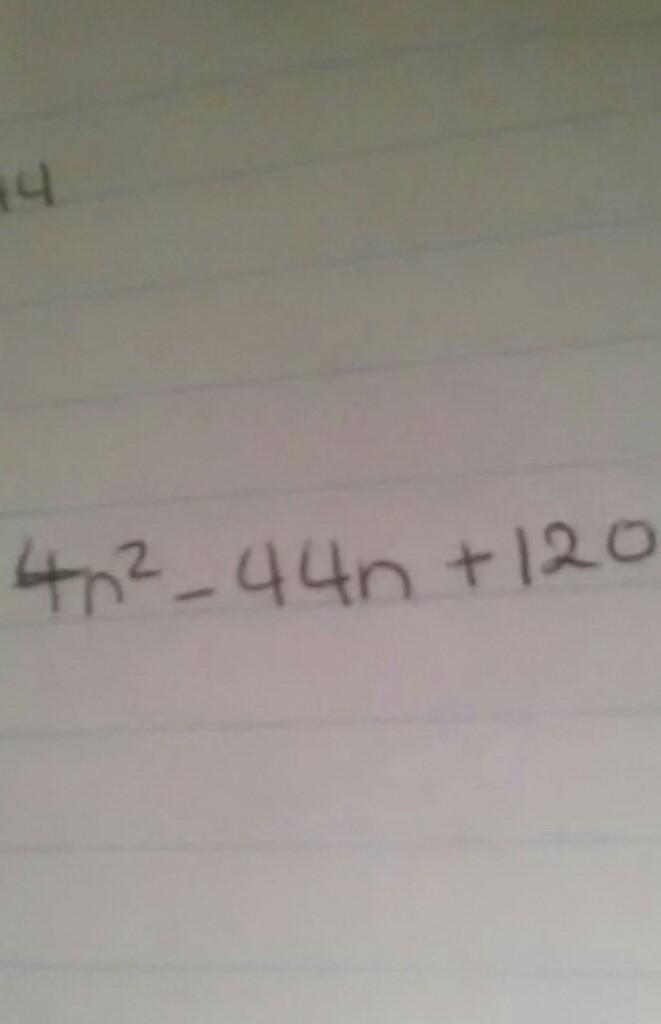 14
4n² - 44n + 120